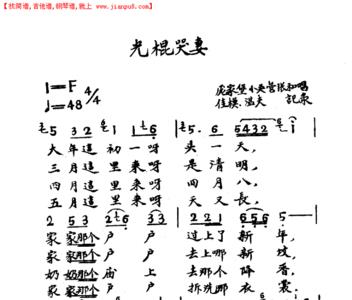 【找简谱,吉他谱,钢琴谱,就上 www.jianpu8.com】
光棍哭妻
1=F 4/4
♩=48
佳模、温夫 記录
5 3 2 1 1 6 | 5 . 6 5 4 3 2 1
大年這初一呀 頭一天,
三月這里来呀 是清明,
四月這里来呀 四月八,
五月這里来呀 天又長,
2 5 3 2 1 6 3 3 | 2 2 1 6 5 6 5 —
家家那个户户 过上了新年,
家家那个户户 去上那新坟,
奶奶那个庙上 去那个降香,
家家那个户户 拆洗那衣裳